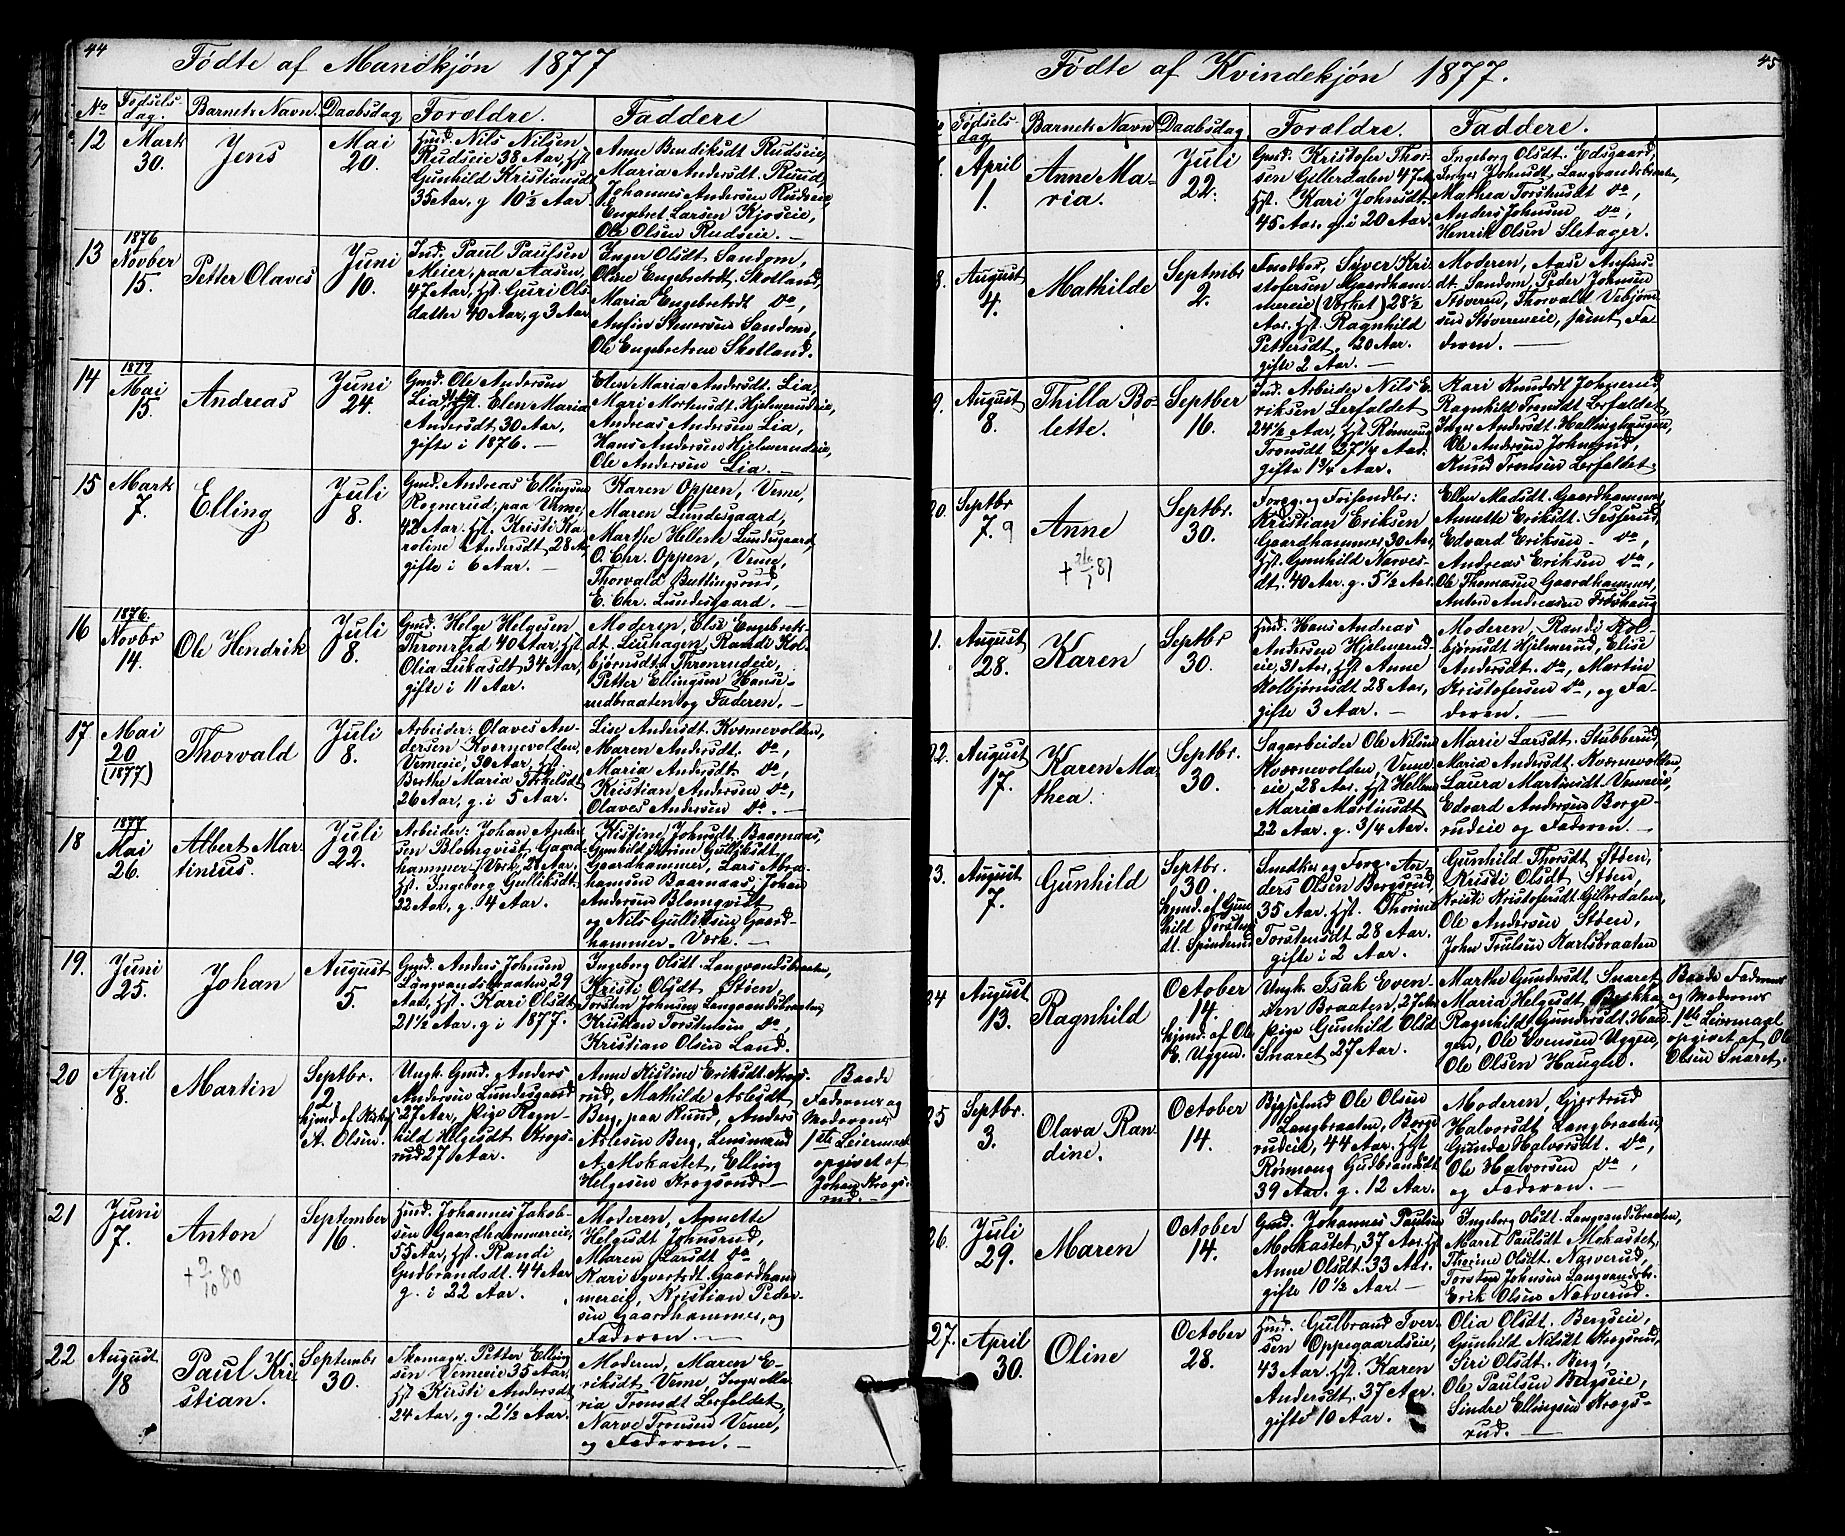 44
Fødte af Mandkjøn 1877
No Fødsels- dag. Barnets Navn. Daabsdag Forældre. Faddere
12 Mark 30. Jens Mai 20.
Husmd. Nils Nilsen
Rudseie 38 Aar, Hst.
Gunhild Kristiansdt
35 Aar, g 10½ Aar
Anne Bendiksdt Rudseie,
Maria Andersdt. Ruud,
Johannes Andersen Rudseie
Engebret Larsen Kjøseie,
Ole Olsen Rudseie. —
13 1876 Novber 15. Petter Olaves Juni 10.
Ind. Paul Paulsen
Meier, paa Aasen,
47 Aar, Hst. Guri Ols
datter 40 Aar, g 3 Aar
Inger Olsdt Sandom,
Oline Engebretsdt, Skotland,
Maria Engebretsdt do,
Anfin Stenersen Sandom,
Ole Engebretsen Skotland.
14 1877 Mai 15. Andreas Juni 24.
Gmd. Ole Andersen
Lia, Hst. Elen Maria
Andersdt, 30 Aar,
gifte i 1876. —
Elen Maria Andersdt. Lia,
Mari Mortensdt. Hjelmerudeie,
Andreas Andersen Lia,
Hans Andersen Hjelmerudeie,
Ole Andersen Lia. —
15 Mark 7. Elling Juli 8.
Gmd. Andreas Ellingsen
Rognerud, paa Veme,
42 Aar. Hst. Kristi Ka-
roline Andersdt 28 Aar
gifte i 6 Aar.
Karen Oppen, Veme,
Maren Lundesgaard,
Marthe Helene Lundesgaard,
O. Chr. Oppen, Veme,
Thorvald Buttingsrud,
E. Chr. Lundesgaard. —
16 1876 Novbr 14. Ole Hendrik Juli 8.
Gmd. Helge Helgesen
Thronrud 40 Aar, Hst
Olia Lukasdt, 34 Aar,
gifte i 11 Aar.
Moderen, Else Engebrek
dt. Lruhagen, Randi Kol-
bjørnsdt. Thronrudeie,
Petter Ellingsen Hanse-
rudbraaten og Faderen.
17 Mai 20 (1877) Thorvald Juli 8.
Arbeider: Olaves An-
dersen Kvernevolden,
Vemeeie, 30 Aar, Hst.
Berthe Maria Therkildsdt
26 Aar, g. i 5 Aar.
Lise Andersdt. Kvernevolden,
Maren Andersdt. do,
Maria Andersdt do,
Kristian Andersen do,
Olaves Andersen do. —
18 1877 Mai 26. Albert Mar- tinius. Juli 22.
Arbeider: Johan Ander
sen Blomqvist, Gaard-
hammer Værk, 28 Aar,
Hst. Ingeborg Gulliksdt.
22 Aar, g. 4 Aar.
Kistine Johnsdt. Baarnaas,
Gunhild Karine Gulliksdt.
Gaardhammer, Lars Abra
hamsen Baarnaas, Johan
Andersen Blomqvist
og Nils Gulliksen Gaard-
hammer-Værk. —
19. Juni 25. Johan August 5.
Gmd. Anders Johnsen
Langvandsbraaten, 29
Aar, Hst. Kari Olsdt
21½ Aar, g i 1877.
Ingeborg Olsdt. Langvandsbraaten,
Kristi Olsdt Støen,
Torsten Johnsen Langvandsbraaten,
Kristian Torstensen do,
Kristian Olsen Land.
20 April 8. Martin Septbr. 12 hjmd af Niskj A. Olsen.
Ungk. Gmd. g Anders
Andersen Lundesgaard
27 Aar, pige Ragn-
hild Helgesdt Krogs-
rud 27 Aar.
Anne Kistine Eriksdt. Krogs-
rud, Mathilde Arlesdt
Berg, paa Ruud, Anders
Arlesen Berg, Lensmand
A. Mokastet, Elling
Helgesen Krogsrud. —
Baade
Faderens og
Moderens
1ste Leiermaal
opgivet af
Johan Krogs-
rud. —
21 Juni 7. Anton September 16.
+ 2/10 80
Husmd. Johannes Jakob-
sen Gaardhammereie,
55 Aar, Hst. Randi
Gudbrandsdt. 44 Aar
g. i 22 Aar.
Moderen, Annette
Helgesdt Johnsrud,
Maren Larsdt do
Kari Syversdt. Gaardham
mereie, Kristian Peder-
sen Gaardhammer, og
Faderen. —
22 August 18 Paul Kri stian. Septembr 30.
Skomagr. Petter Elling
sen Vemeeie 35 Aar,
Hst Kirsti Andersdt
24 Aar, g. 2½ Aar.
Moderen, Maren E-
riksdt Veme, Inger Ma-
ria Tronsdt Lerfaldet,
Narve Tronsen Veme,
og Faderen. —
45
Fødte af Kvindekjøn 1877.
Fødsels dag Barnets Navn Daabsdag Forældre. Faddere.
April 1. Anne Ma- ria. Juli 22.
Gmd. Kristofer Thor-
sen Gillerdalen 47 Aar
Hst. Kari Johnsdt.
45 Aar. g. i 20 Aar.
Ingeborg Olsdt. Edsgaard,
Inger Johnsdt. Langvandsbraaten,
Mathea Torstensdt do,
Anders Johnsen do,
Henrik Olsen Sletager.
8. August 4. Mathilde Septmbr 2.
Snedker, Syver Kri
stofersen Gaardham
mereie (Værket) 28½
Aar. Hst. Ragnhild
Pettersdt, 20 Aar.
gifte 2 Aar. —
Moderen, Aase Anfins
dt. Sandom, Peder Johnsen
Støveren, Thorvald Vebjørn
sen Støverneie, samt Fa-
deren. —
9. August 8. Thilla Bo- lette. Septber 16.
Ind. Arbeider Nils E
riksen Lerfaldet
24½ Aar, Hst. Rønnaug
Tronsdt 27¼ Aar.
gifte 1¾ Aar.
Kari Knudsdt Johnsrud
Ragnhild Tronsdt Lerfaldet,
Inger Andersdt. Hallinghaugen,
Ole Andersen Johnsrud,
Knud Tronsen Lerfaldet.
20. Septbr 7. 9 Anne Septbr. 30.
+ 26/1 81
Foreg. og Frihandler:
Kristian Eriksen
Gaardhammer 30 Aar,
Hst. Gunhild Narves-
dt. 40 Aar g. 5½ Aar.
Ellen Madsdt. Gaardhammer,
Annette Eriksdt. Sesserud,
Edvard Eriksen. do,
Andreas Eriksen do,
Ole Thomasen Gaardhammer,
Anders Andreasen Frøshaug
21. August 28. Karen Septbr 30.
Husmd. Hans Andreas
Andersen Hjelmerud-
eie, 31 Aar, Hst Anne
Kolbjørnsdt 28 Aar,
gifte 3 Aar. —
Moderen, Randi Kol-
bjørnsdt Hjelmerud, Elise
Andersdt. do, Martin
Kristofersen do, og Fa-
deren. —
22. August 17. Karen Ma thea. Septbr. 30.
Sagarbeider Ole Nilsen
Kværnevolden, Veme
eie, 28 Aar, Hst Hellene
Maria Martinsdt
22 Aar. g. 3/4 Aar.
Marie Larsdt. Stubberud,
Maria Andersdt. Kværnevolden,
Laura Martinsdt Vemeeie,
Edvard Andersen Borge-
rudeie og Faderen. —
23. August 7. Gunhild Septbr. 30. hjmd. af Gun hild Torsten dt. Spinderud
Snedker og Foreg. An-
ders Olsen Bergsrud,
35 Aar. Hst. Thorine
Torstensdt 28 Aar.
gifte i 2 Aar.
Gunhild Thorsdt Støen,
Kristi Olsdt Støen,
Kristi Kristofersdt. Gillerdalen,
Ole Andersen Støen,
John Trulsen Karlsbraaten
24 August 13. Ragnhild October 14. hjmd. af Ole E. Uggen.
Ungk. Isak Even-
sen Braaten, 27 Aar
pige Gunhild Olsdt
Snaret 27 Aar.
Marthe Gundersdt. Snaret,
Maria Helgesdt,
Ragnhild Gundersdt. Hau-
gen, Ole Evensen Uggen,
Ole Olsen Hauglid.
Baade Faderens
og Moderens
1ste Leiermaal
opgivet af Ole
Olsen Snaret.
25 Septbr. 3. Olava Ran- dine. October 14.
Bygselmd Ole Olsen
Langbraaten, Borge
rudeie, 44 Aar. Hst
Rønnaug Gudbrandsdt
39 Aar. g. 12 Aar.
Moderen, Gjertrud
Halvorsdt Langbraaten,
Gunda Halvorsdt. do,
Ole Halvorsen do,
og Faderen. —
26. Juli 29. Maren October 14.
Gmd. Johannes Paulsen
Mokastet, 37 Aar. Hst
Anne Olsdt. 33 Aar.
gifte 10½ Aar. —
Ingeborg Olsdt. Langvandsbraaten,
Marit Paulsdt Mokastet,
Thorine Olsdt. Narverud,
Torsten Johnsen Langvandsbr.
Erik Olsen Narverud.
27. April 30. Oline October 28.
Husmd. Gulbrand Iver-
sen Oppegaardseie,
43 Aar. Hst. Karen
Andersdt. 37 Aar.
gifte 10 Aar.
Olia Olsdt. Bergseie,
Gunhild Nilsdt Krogsrud,
Siri Olsdt. Berg,
Ole Paulsen Bergseie,
Sindre Ellingsen Krogs-
rud. —